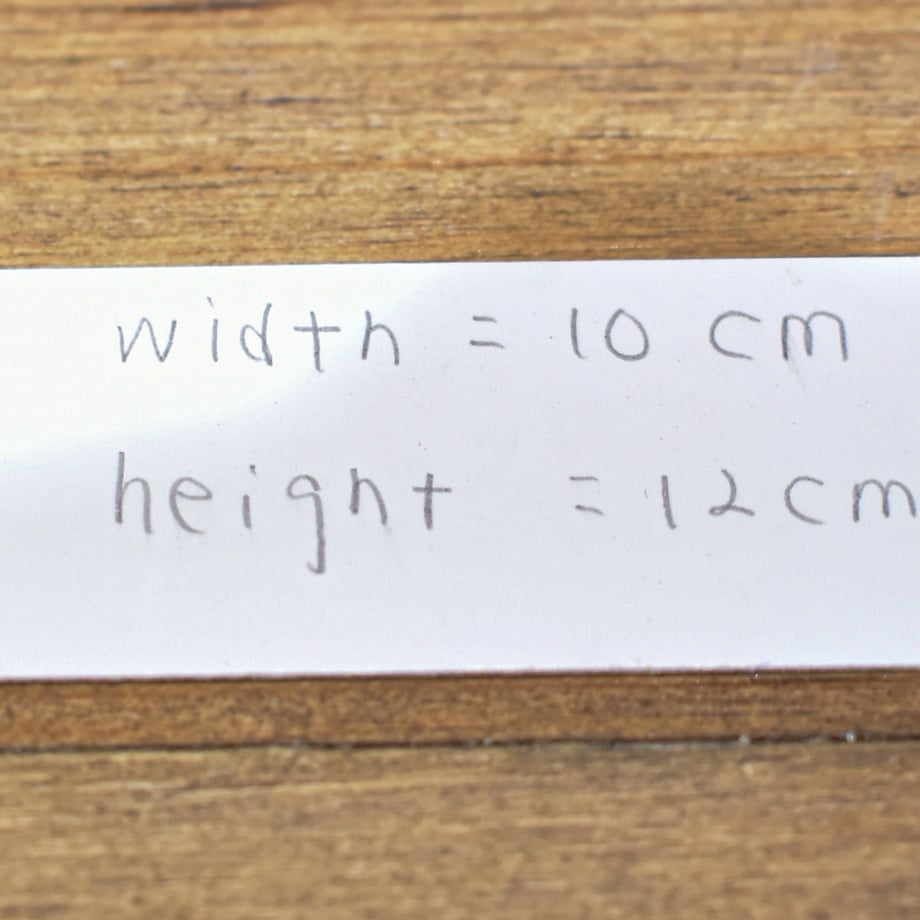 width = 10 cm
height = 12cm